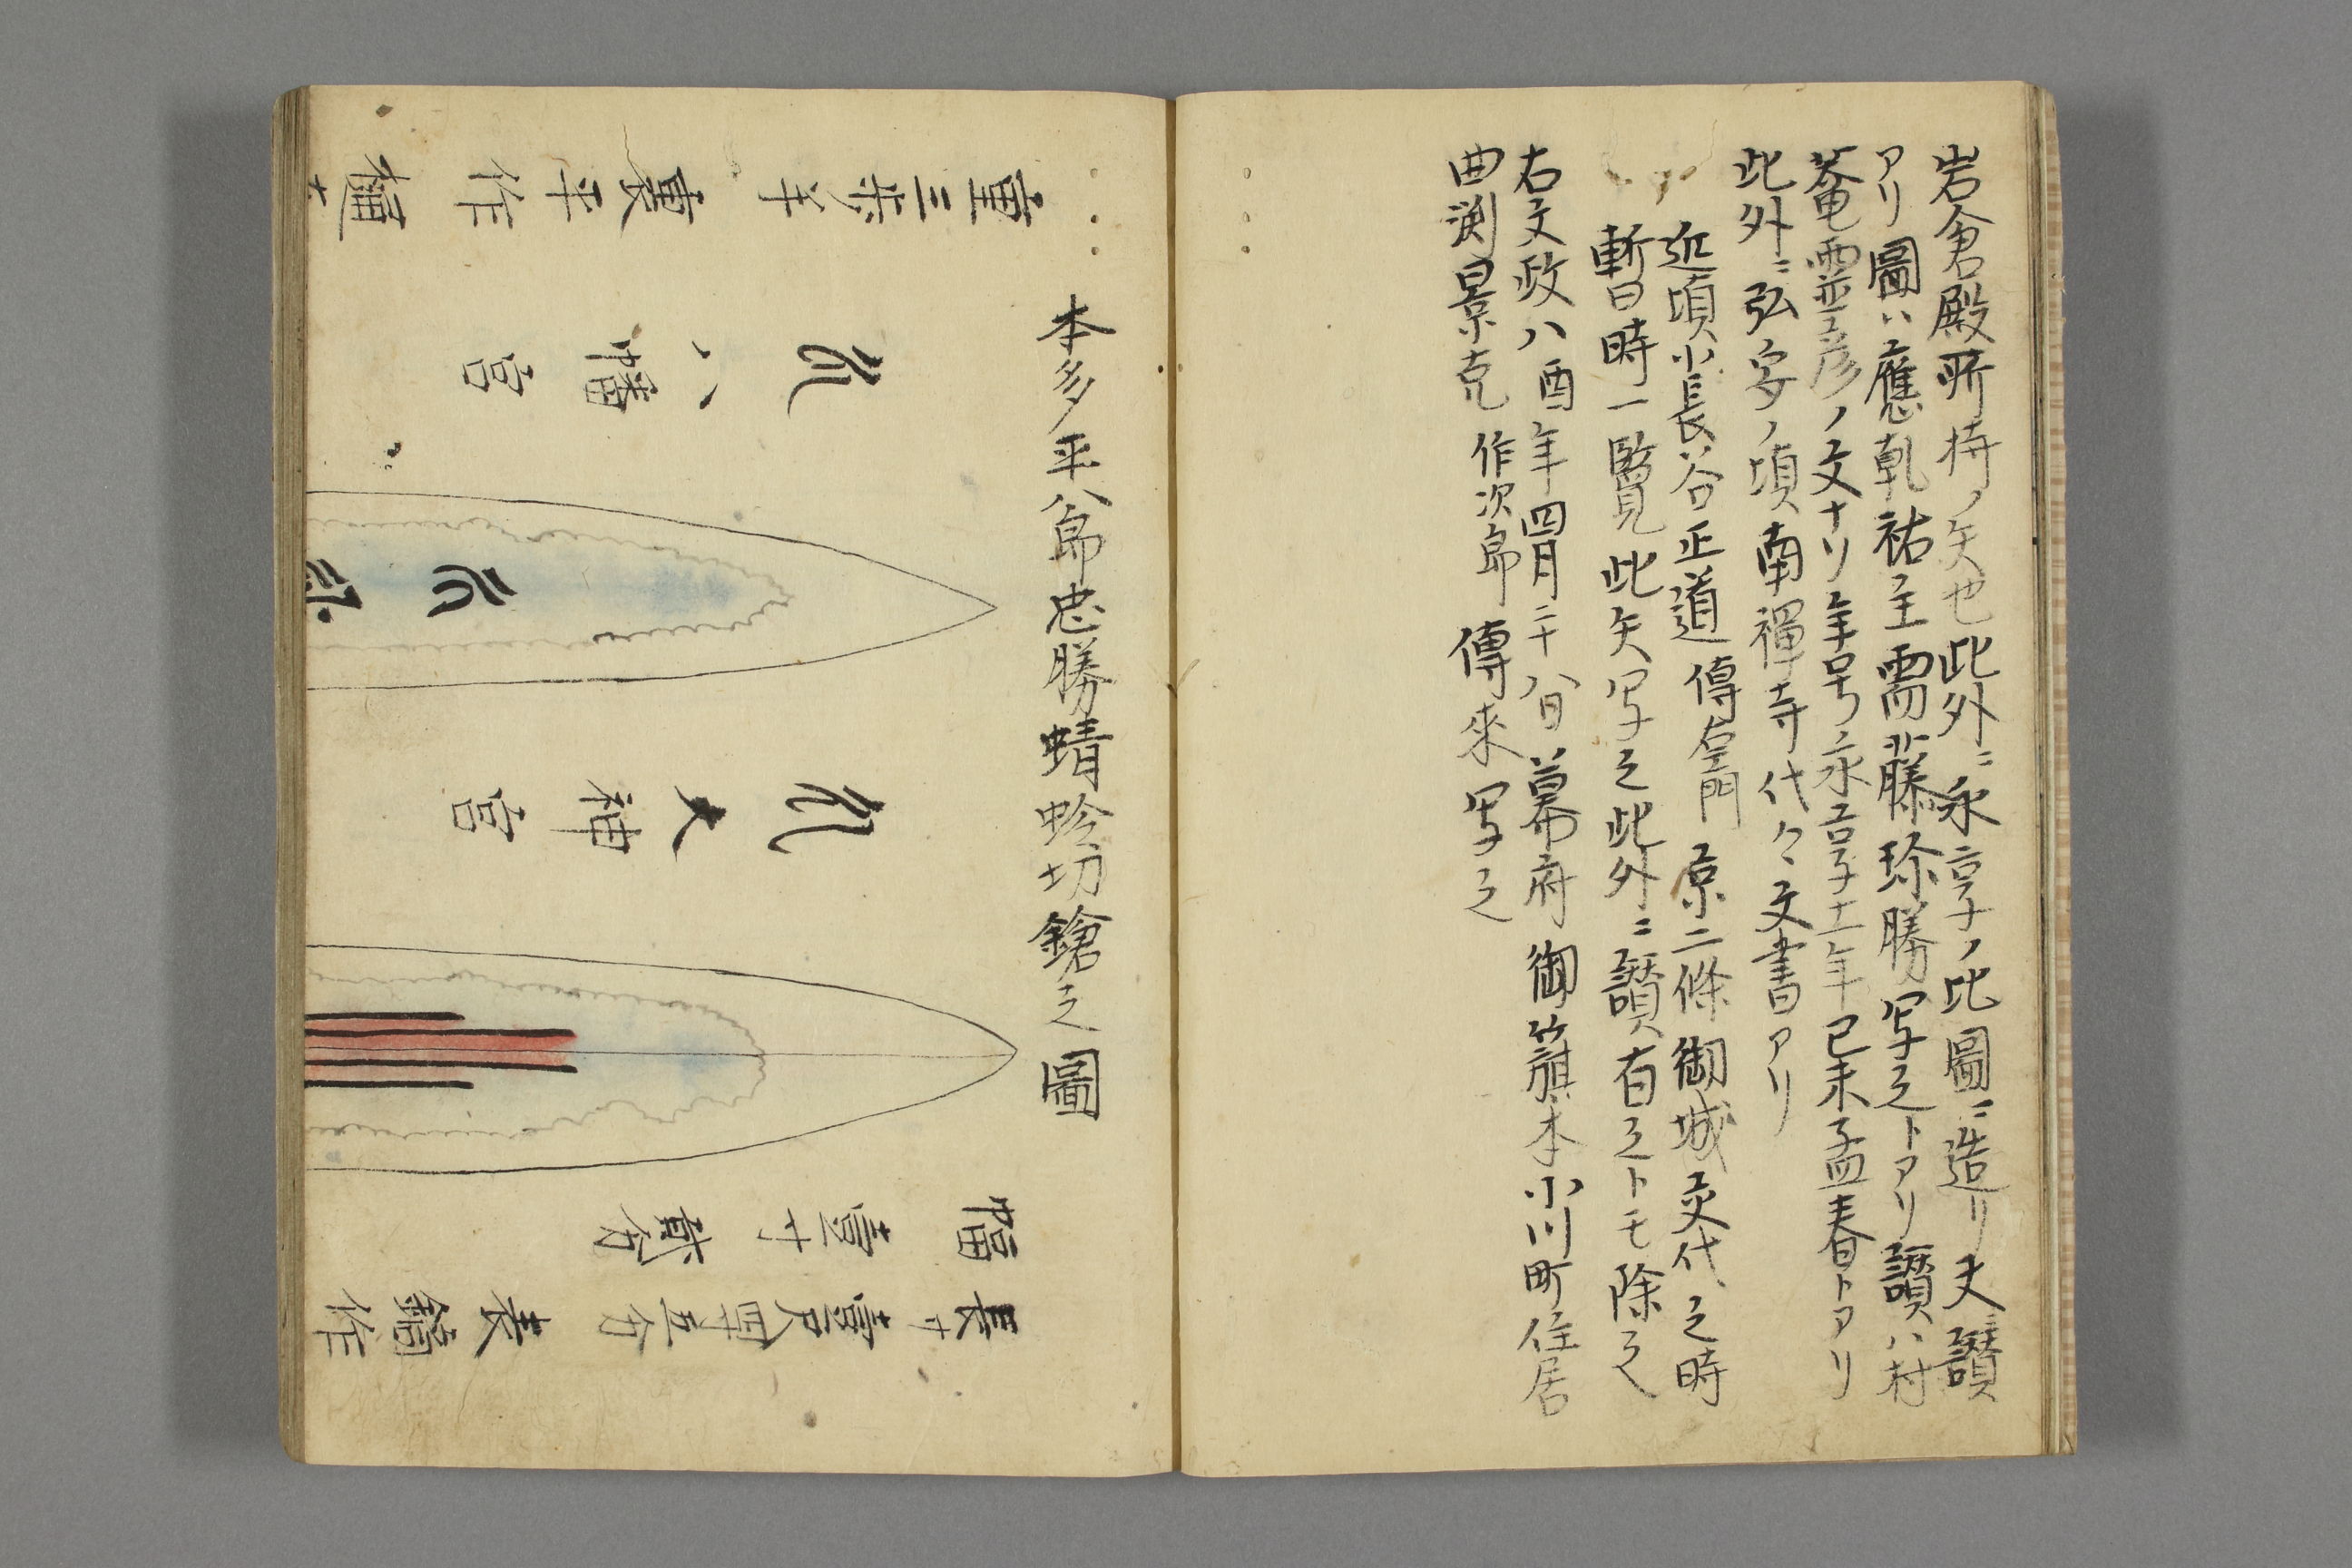 岩倉殿所持ノ矢也此外ニ永享ノ比圖ニ造リ夫讃
アリ圖ハ應乾祐主需藤珎勝写之トアリ讃ハ村
菴霊彦ノ文ナリ年号永享十一年己未孟春トアリ
此外ニ弘安ノ頃南禅寺代々文書アリ
近頃小長谷正道傳左門京二條御城交代之時
暫日時一覧此矢写之此外ニ讃有之トモ除之
右文政八酉年四月二十八日幕府御籏本小川町住居
曲渕景克作次郎傳來写之
本多平八郎忠勝蜻蛉切鎗之圖
幅壹寸貮分
長サ壹尺四寸五分表鎬作
大神宮
八幡宮
重三歩半裏平作樋